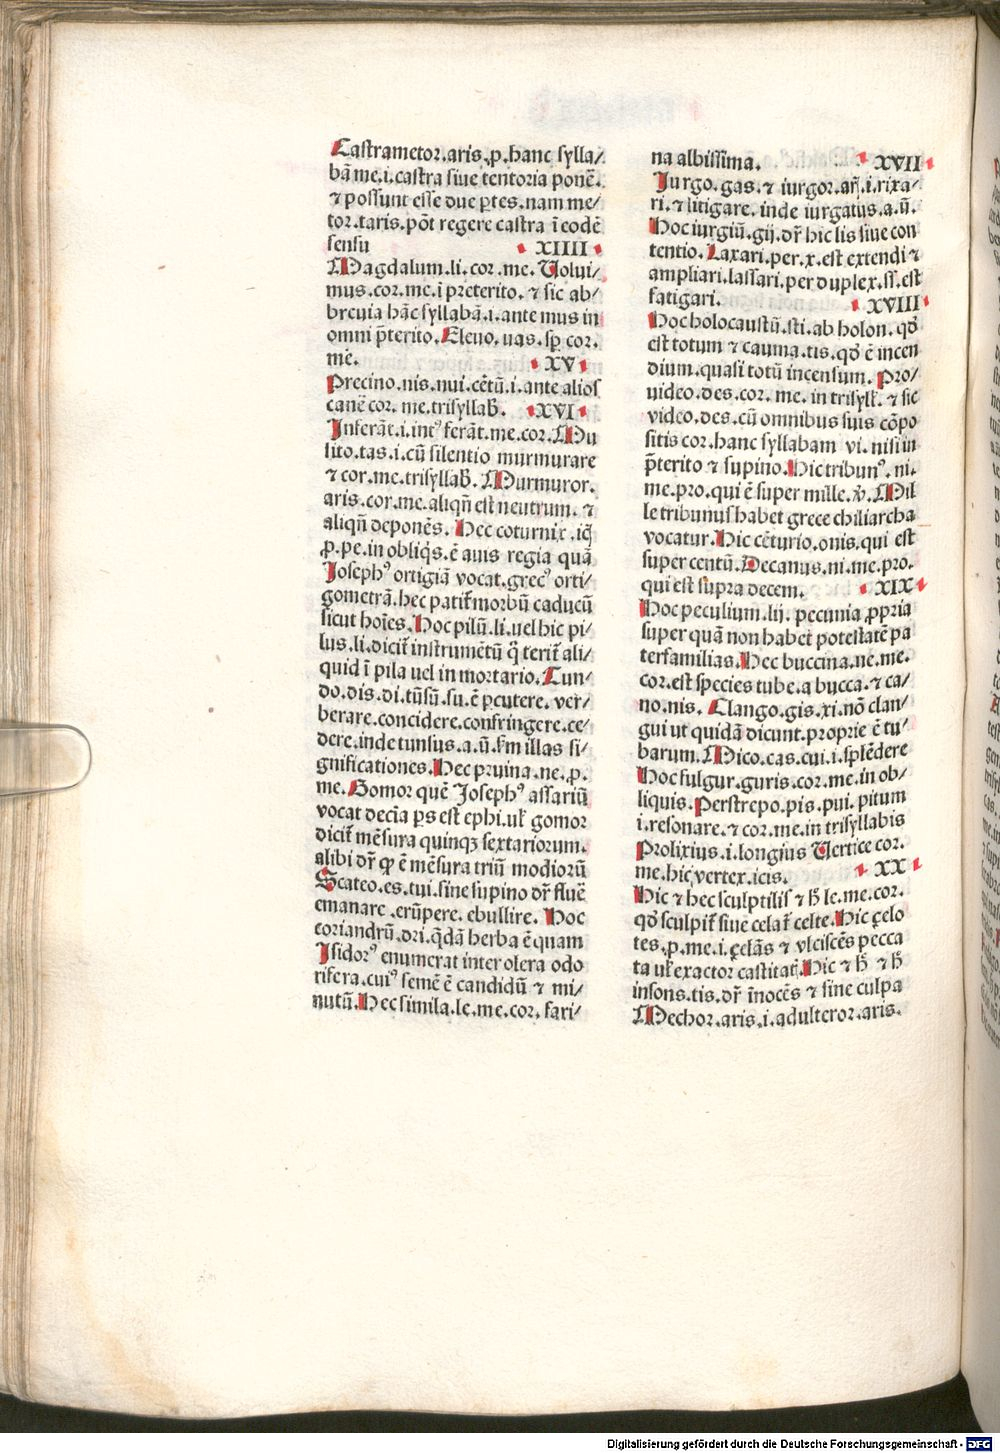 Castrametor.aris.ꝓ.hanc sylla/
bā me.i.castra siue tentoria ponē.
⁊ possunt esse due ꝑtes.nam me/
tor.taris.pōt regere castra ī eodē
sensu XIIII
Magdalum.li.cor.me. Uolui/
mus.cor.me.ī preterito.⁊ sic ab/
breuia hāc syllabā.i.ante mus in
omni p̄terito.Eleuo.uas.sꝑ cor.
me. XV
Precino.nis.nui.cētū.i.ante alios
canē cor.me.trisyllab. XVI
Inferāt.i.intꝰ ferāt.me.cor.Mu
sito.tas.i.cū silentio murmurare
⁊ cor.me.trisyllab.Murmuror.
aris.cor.me.aliqn̄ est neutrum.⁊
aliqn̄ deponēs.Hec coturnix.
ꝓ.pe.in obliq̇s.ē auis regia quā
Josephꝰ ortigiā vocat.grecꝰ orti/
gometrā.hec patit morbū caducū
sicut hoīes.Hoc pilū.li.uel hic pi/
lus.li.dicit instrumētū q̄ terit ali/
quid ī pila uel in mortario.Tun/
do.dis.di.tūsū.su.ē ꝑcutere.ver/
berare.concidere.confringere.ce/
dere.inde tunsus.a.ū.fm illas si/
gnificationes.Hec pruina.ne.ꝓ.
me.Gomor quē Josephꝰ assariū
vocat decīa ꝑs est ephi.ul gomor
dicit mēsura quinqꝫ sextariorum.
alibi dr̄ ꝙ ē mēsura triū modiorū
Scateo.es.tui.sine supino dr̄ fluē
emanare.erūpere.ebullire. Hoc
coriandrū.dri.q̄dā herba ē quam
Isidorꝰ enumerat inter olera odo
rifera.cuiꝰ semē ē candidū ⁊ mi/
nutū.Hec simila.le.me.cor.fari/
na albissima. XVII
Iurgo.gas.⁊ iurgor.ar̄.i.rixa/
ri.⁊ litigare.inde iurgatus.a.ū.
Hoc iurgiū.gij.dr̄ hic lis siue con
tentio.Laxari.per.x.est extendi ⁊
ampliari.lassari.per duplex.ss.est
fatigari. XVIII
Hoc holocaustū.sti.ab holon.qđ
est totum ⁊ cauma.tis.qđ ē incen
dium.quasi totū incensum.Pro/
uideo.des.cor.me.in trisyll.⁊ sic
video.des.cū omnibus suis cōpo
sitis cor.hanc syllabam vi.nisi in
p̄terito ⁊ supino.Hic tribunꝰ.ni.
me.pro.qui ē super mille. Mil
le tribunus habet grece chiliarcha
vocatur.Hic cēturio.onis.qui est
super centū.Decanus.ni.me.pro.
qui est supra decem. XIX
Hoc peculium.lij.pecunia ꝓpria
super quā non habet potestatē pa
terfamilias.Hec buccina.ne.me.
cor.est species tube.a bucca.⁊ ca/
no.nis. Clango.gis.xi.nō clan/
gui ut quidā dicunt.proprie ē tu/
barum.Mico.cas.cui.i.splēdere
Hoc fulgur.guris.cor.me.in ob/
liquis.Perstrepo.pis.pui.pitum
i.resonare.⁊ cor.me.in trisyllabis
Prolixius.i.longius Vertice cor.
me.hic vertex.icis. XX
Hic ⁊ hec sculptilis ⁊ h̄ le.me.cor.
qđ sculpit siue celat celte.Hic çelo
tes.ꝓ.me.i.çelās ⁊ vlciscēs pecca
ta ul exactor castitat.Hic ⁊ h̄ ⁊ h̄
insons.tis.dr̄ īnocēs ⁊ sine culpa
Mechor.aris.i.adulteror.aris.
Digitalisierung gefördert durch die Deutsche Forschungsgemeinschaft - DFG